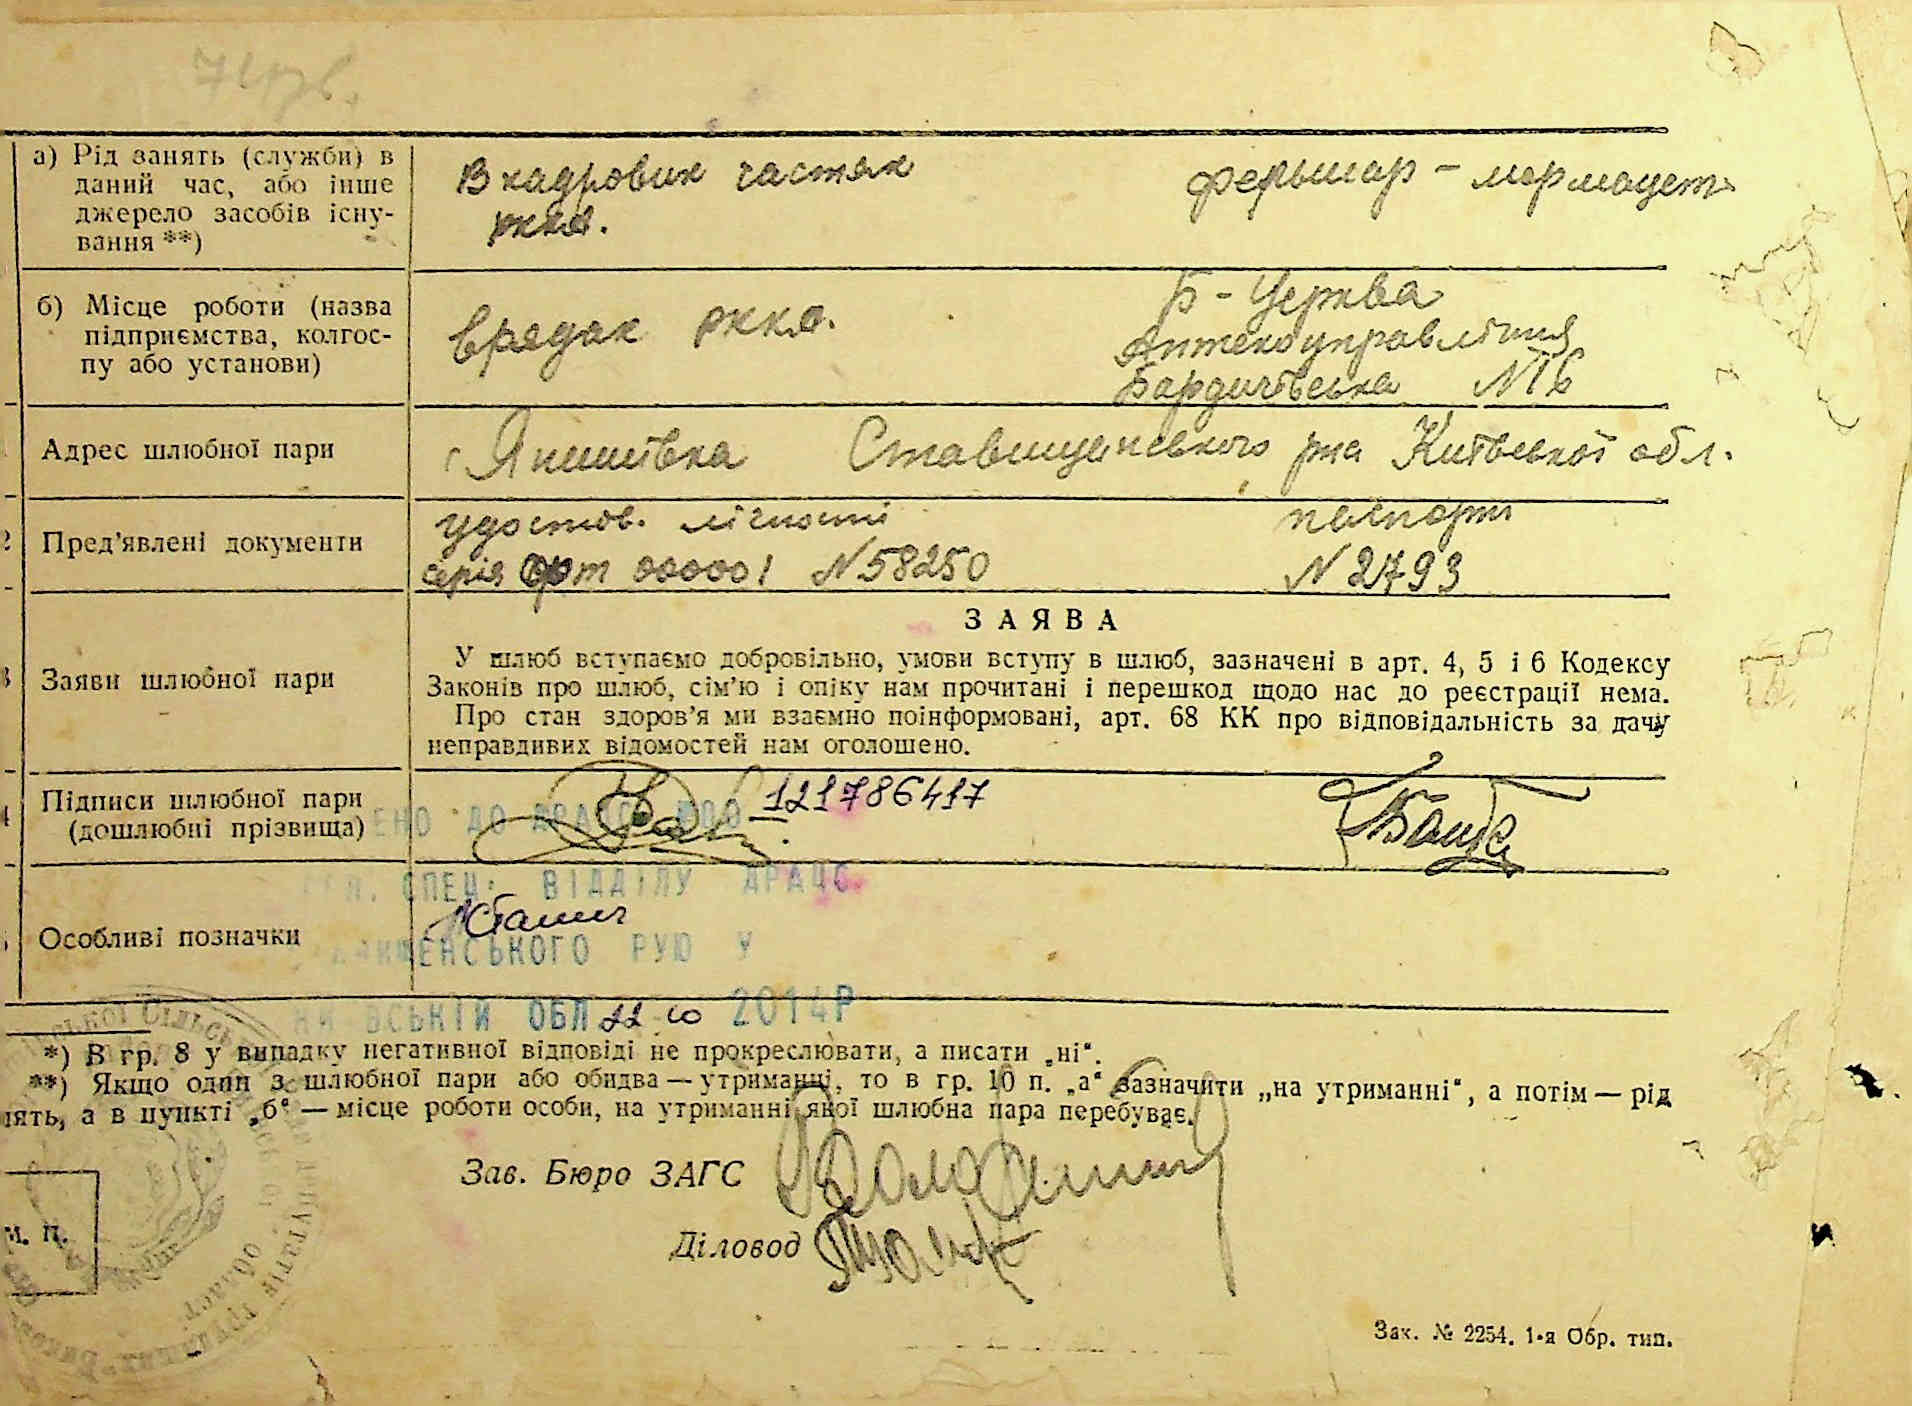 а) Рід занять (служби) в
даний час, або інше
джерело засобів існу-
вання **)
В кадрових частях
РККА.
фельшар -
б) Місце роботи (назва
підприємства, колгос-
пу або установи)
В рядах РККА.
Б-Церква
Аптекоуправління
Бардичівська №16
Адрес шлюбної пари
Ставищенського р-на Київської обл.
Пред'явлені документи
удостов. лічності
серія 000001 №58250
паспорт
№2793
ЗАЯВА
Заяви шлюбної пари
У шлюб вступаємо добровільно, умови вступу в шлюб, зазначені в арт. 4, 5 і 6 Кодексу
Законів про шлюб, сім'ю і опіку нам прочитані і перешкод щодо нас до реєстрації нема.
Про стан здоров'я ми взаємно поінформовані, арт. 68 КК про відповідальність за дачу
неправдивих відомостей нам оголошено.
Підписи шлюбної пари
(дошлюбні прізвища)
ЕНО ДО ДРАЦС
121786417
СПЕЦ. ВІДДІЛУ ДРАЦС
Особливі позначки
ЕНСЬКОГО РУЮ У
ВСЬКІЙ ОБЛ 22 10 2014Р
*) В гр. 8 у випадку негативної відповіді не прокреслювати, а писати „ні“.
**) Якщо один з шлюбної пари або обидва — утриманці, то в гр. 10 п. „а“ зазначити „на утриманні“, а потім — рід
нять, а в пункті „б“ — місце роботи особи, на утриманні якої шлюбна пара перебуває.
Зав. Бюро ЗАГС
М. П.
Діловод
Зак. № 2254. 1-а Обр. тип.